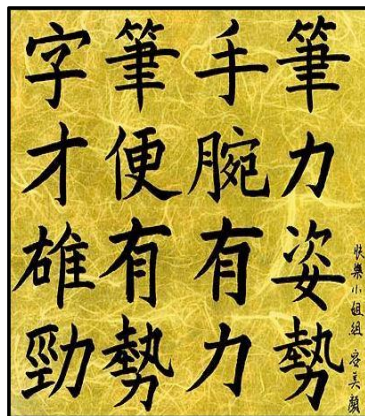 筆力姿勢
手腕有力
筆便有勢
字才雄勁
快樂小姐組 容美顏